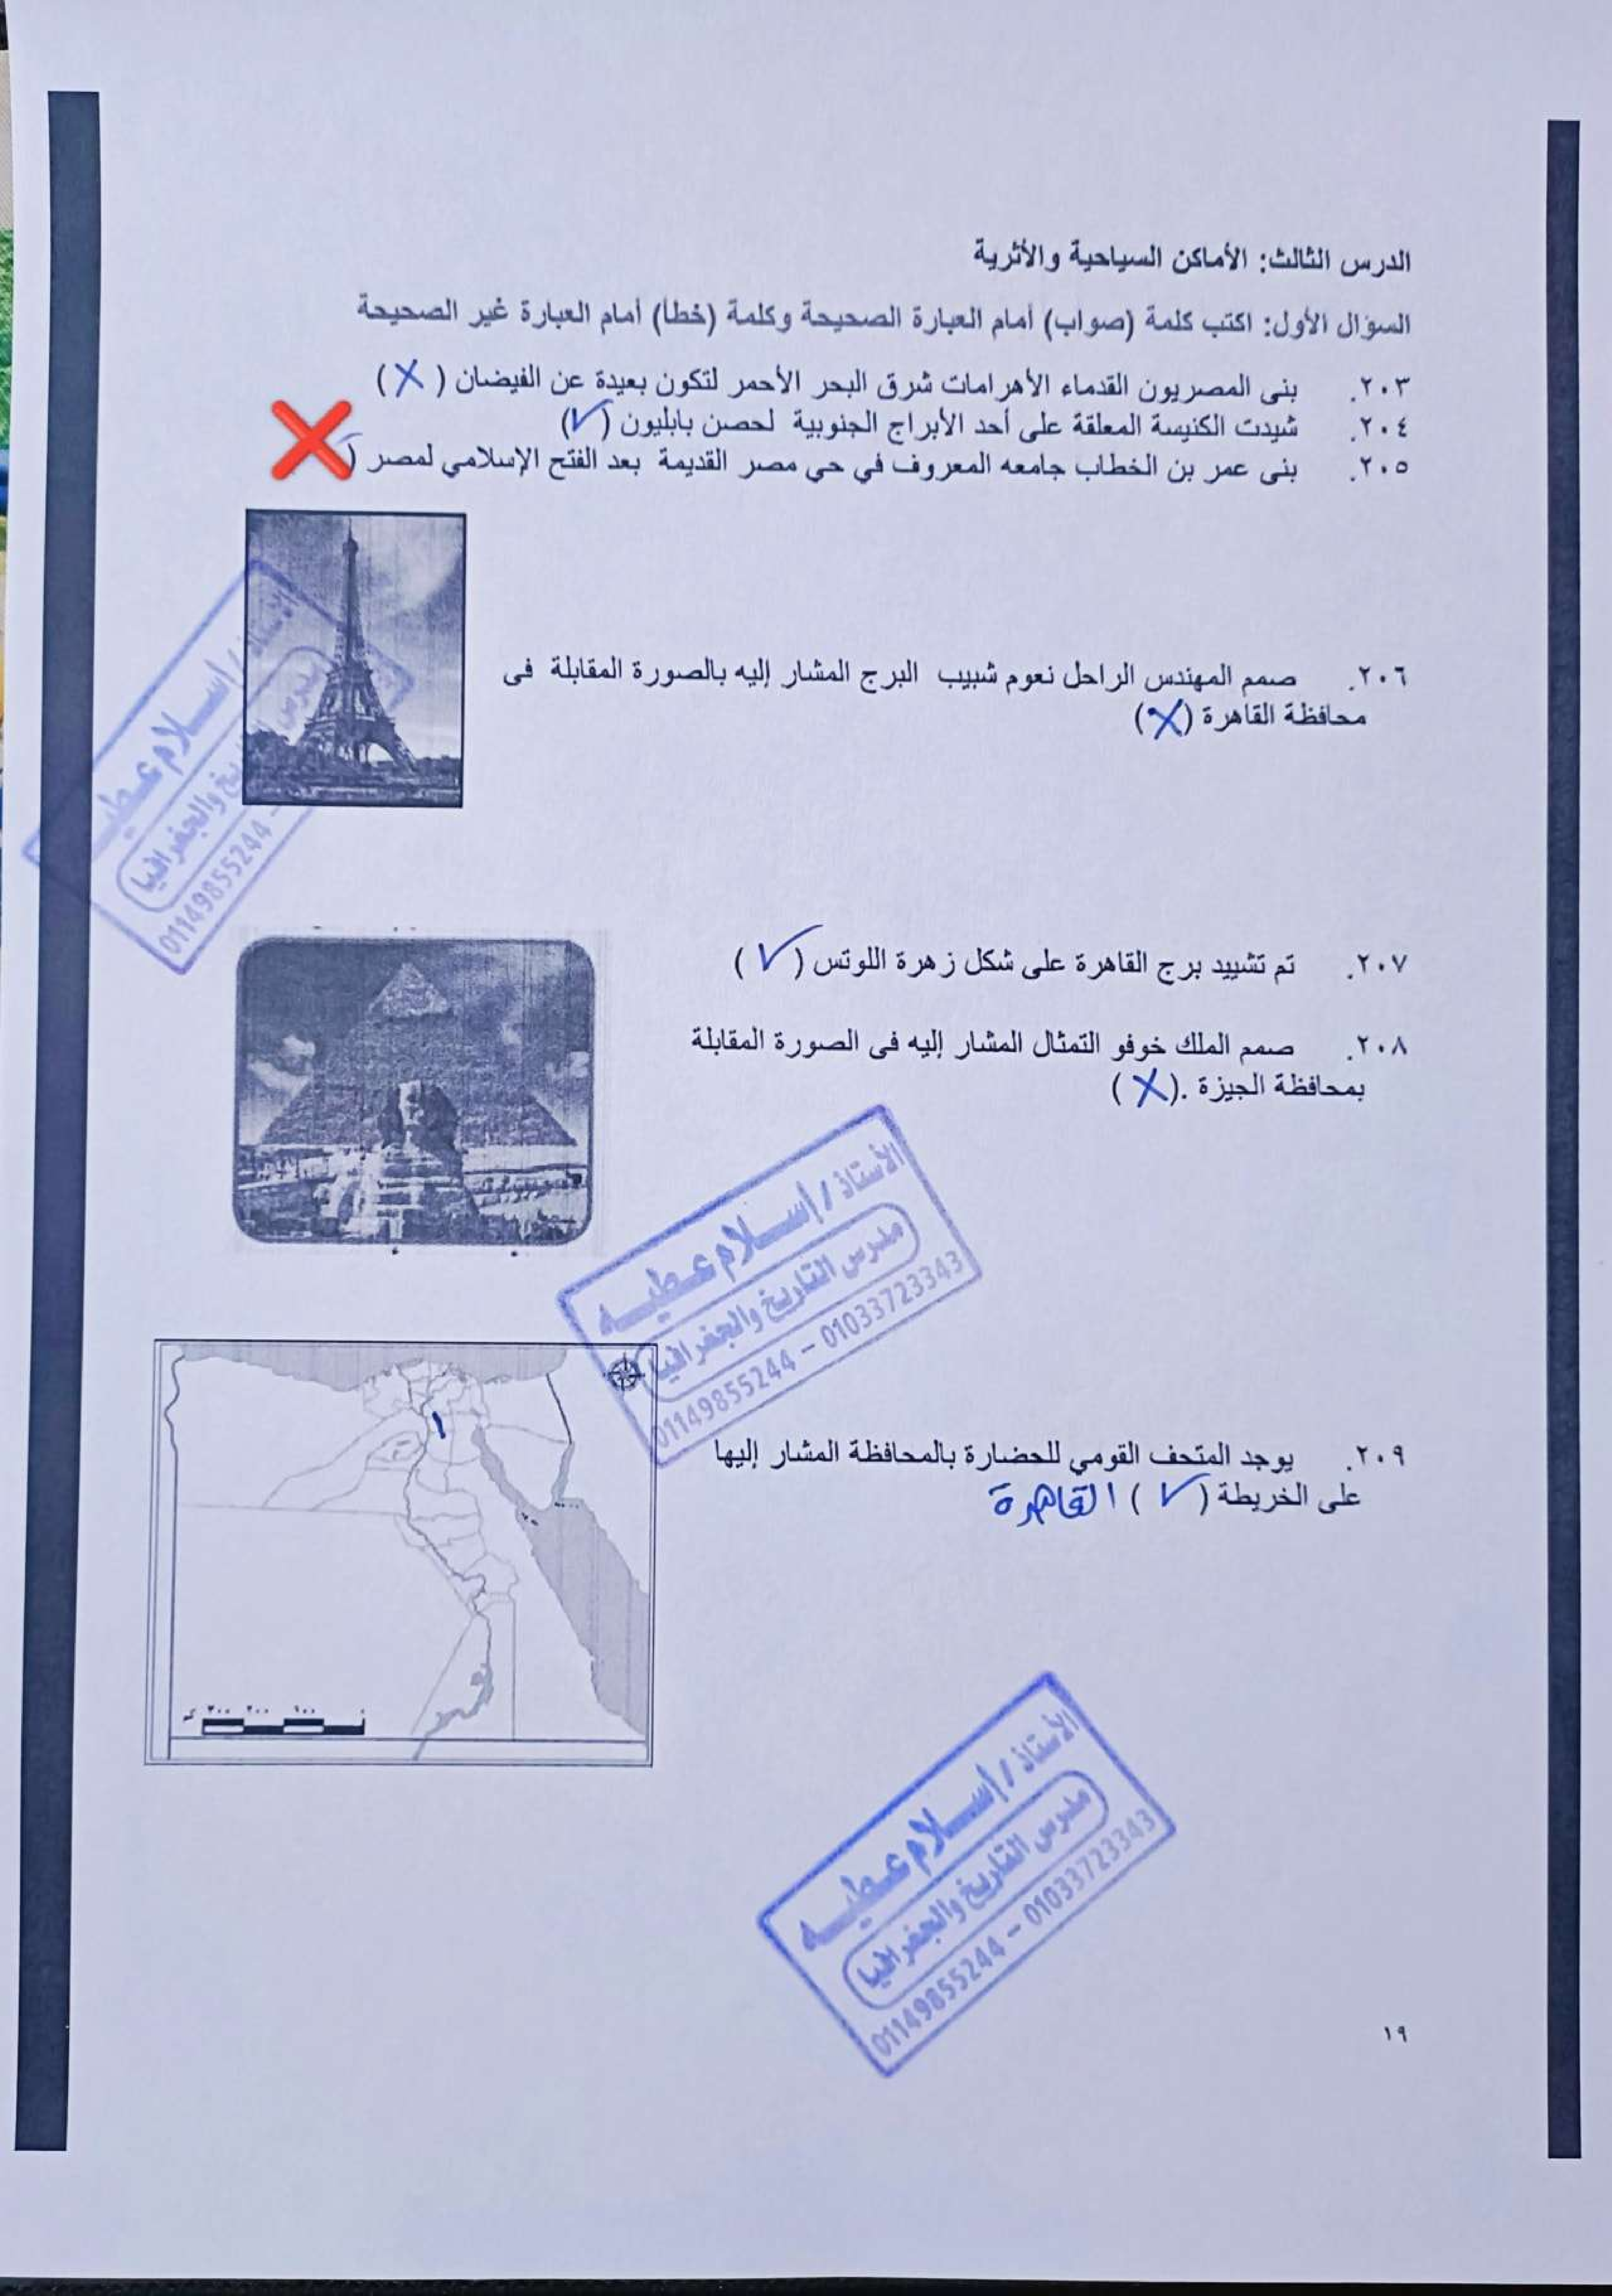 الدرس الثالث: الأماكن السياحية والأثرية
السؤال الأول: اكتب كلمة (صواب) أمام العبارة الصحيحة وكلمة (خطأ) أمام العبارة غير الصحيحة
٢٠٣. بنى المصريون القدماء الأهرامات شرق البحر الأحمر لتكون بعيدة عن الفيضان ( X )
٢٠٤. شيدت الكنيسة المعلقة على أحد الأبراج الجنوبية لحصن بابليون (✓)
٢٠٥. بنى عمر بن الخطاب جامعه المعروف في حي مصر القديمة بعد الفتح الإسلامي لمصر ( ❌
٢٠٦. صمم المهندس الراحل نعوم شبيب البرج المشار إليه بالصورة المقابلة فى
محافظة القاهرة (X)
الأستاذ / إسلام عطيه
مدرس التاريخ والجغرافيا
01149855244 -
٢٠٧. تم تشييد برج القاهرة على شكل زهرة اللوتس ( ✓ )
٢٠٨. صمم الملك خوفو التمثال المشار إليه فى الصورة المقابلة
بمحافظة الجيزة .( X )
الأستاذ / إسلام عطيه
مدرس التاريخ والجغرافيا
01149855244 - 01033723343
١
٢٠٩. يوجد المتحف القومي للحضارة بالمحافظة المشار إليها
على الخريطة ( ✓ ) القاهرة
٣٠٠ ٢٠٠ ١٠٠ ٠ كم
الأستاذ / إسلام عطيه
مدرس التاريخ والجغرافيا
01149855244 - 01033723343
١٩